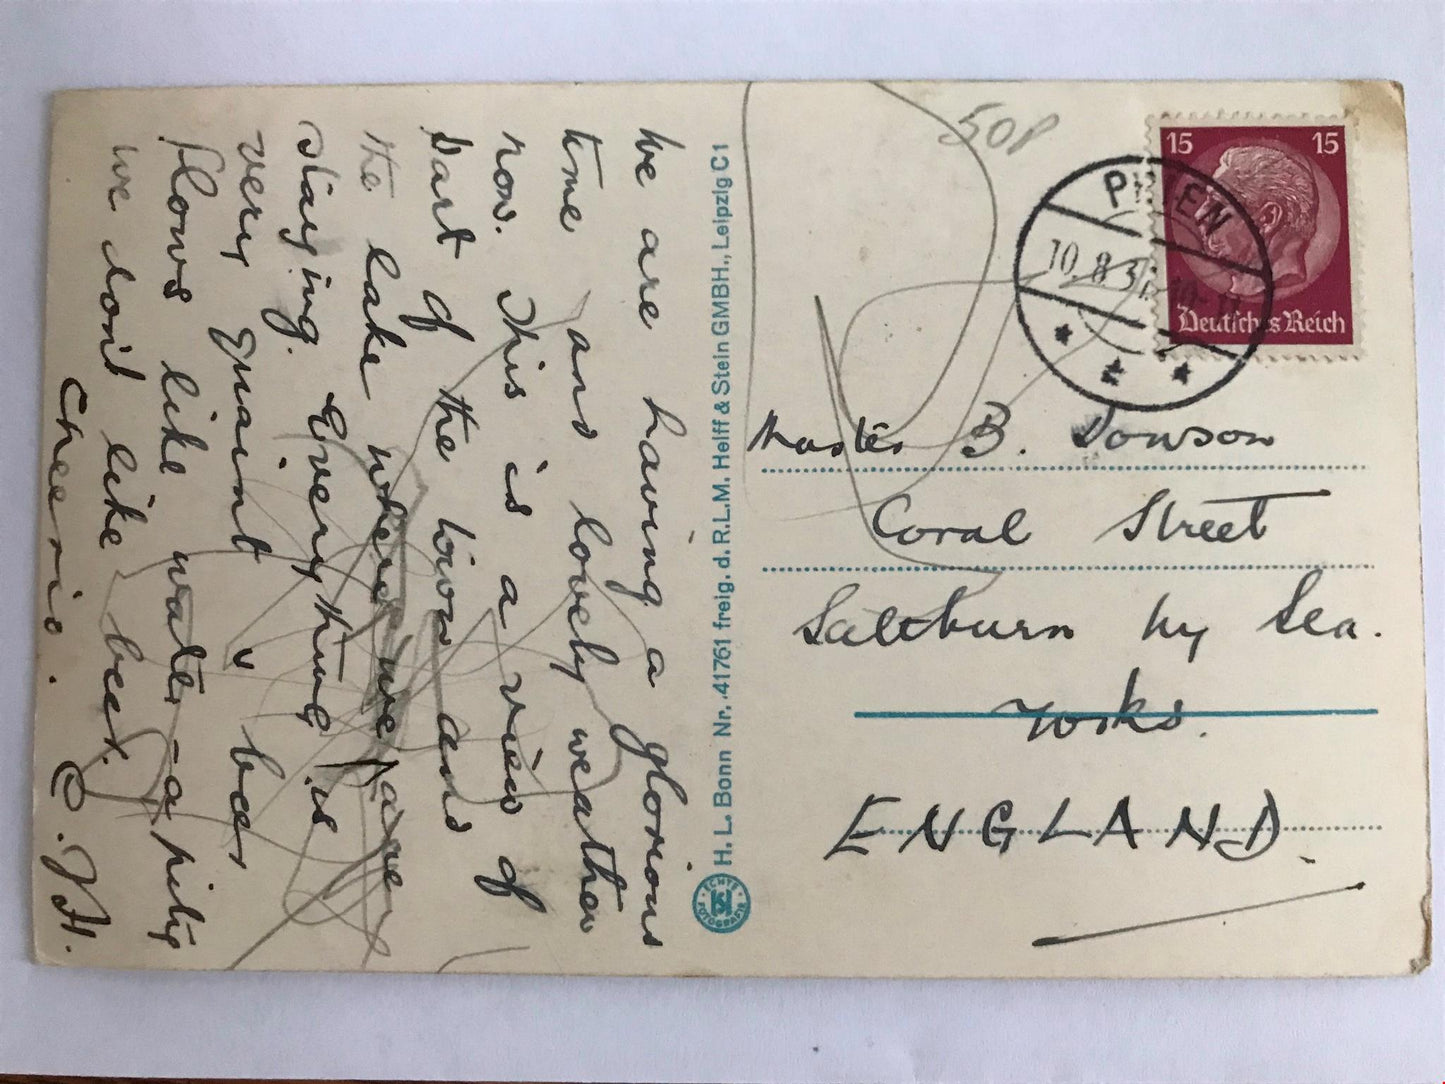 We are having a glorious
time and lovely weather
now. This is a view of
part of the town and
the lake where we are
staying. Everything is
very quaint & beer
flows like water - a pity
we don't like beer.
Cheerio. C.
H. L. Bonn Nr. 41761 freig. d. R.L.M. Helff & Stein GMBH., Leipzig C1
ECHTE FOTOGRAFIE
50P
15 15
Deutsches Reich
10.8.3
Master B. Dowson
Coral Street
Saltburn by Sea.
Yorks.
ENGLAND.